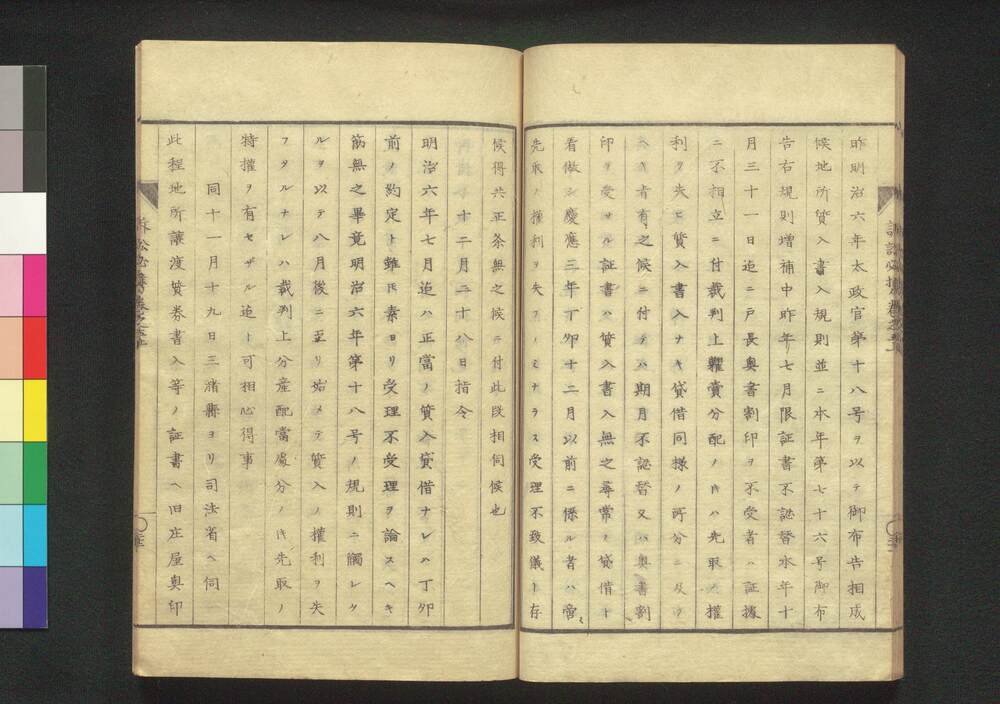 昨明治六年太政官第十八号ヲ以テ御布告相成
候地所質入書入規則並ニ本年第七十六号御布
告右規則増補中昨年七月限証書不認替本年十
月三十一日迄ニ戸長奥書割印ヲ不受者ハ証據
ニ不相立ニ付裁判上糶賣分配ノ時ハ先取ノ權
利ヲ失ヒ質入書入ナキ貸借同様ノ所分ニ及フ
ヘキ者有之候ニ付テハ期月不認替又ハ奥書割
印ヲ受サル証書ハ質入書入無之尋常ノ貸借ト
看做シ慶應三年丁卯十二月以前ニ係ル者ハ啻ニ
先取ノ權利ヲ失フノミナラス受理不致儀ト存
候得共正条無之候ニ付此段相伺候也
十二月二十八日指令
明治六年七月迄ハ正當ノ質入貸借ナレハ丁卯
前ノ約定ト雖𪜈素ヨリ受理不受理ヲ論スヘキ
筋無之畢竟明治六年第十八号ノ規則ニ觸レタ
ルヲ以テ八月後ニ至リ始メテ質入ノ權利ヲ失
フタルナレハ裁判上分産配當處分ノ時先取ノ
特權ヲ有セサル迄ト可相心得事
同十一月十九日三潴縣ヨリ司法省ヘ伺
此程地所讓渡質券書入等ノ証書ヘ旧庄屋奥印